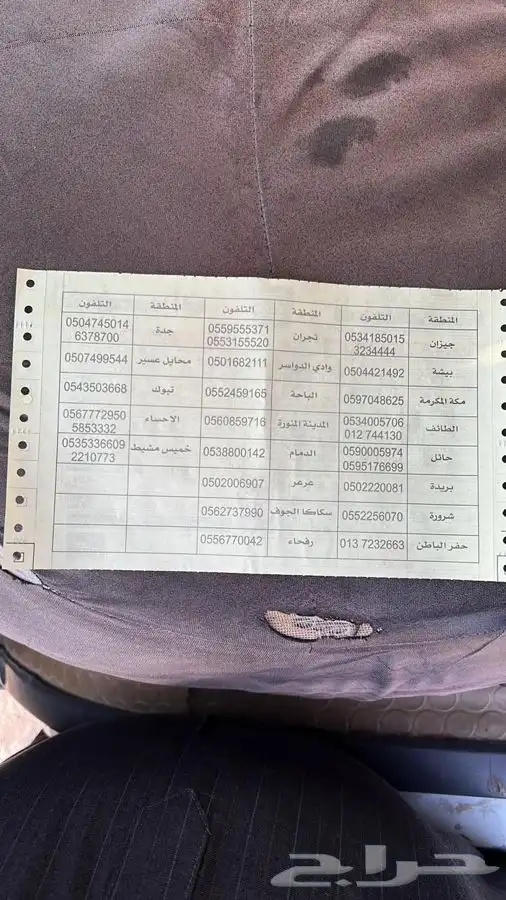 المنطقة التلفون المنطقة التلفون المنطقة التلفون
جيزان 0534185015 نجران 0559555371 جدة 0504745014
3234444 0553155520 6378700
بيشة 0504421492 وادي الدواسر 0501682111 محايل عسير 0507499544
مكة المكرمة 0597048625 الباحة 0552459165 تبوك 0543503668
الطائف 0534005706 المدينة المنورة 0560859716 الاحساء 0567772950
012 744130 5853332
حائل 0590005974 الدمام 0538800142 خميس مشيط 0535336609
0595176699 2210773
بريدة 0502220081 عرعر 0502006907
شرورة 0552256070 سكاكا الجوف 0562737990
حفر الباطن 013 7232663 رفحاء 0556770042
حراج